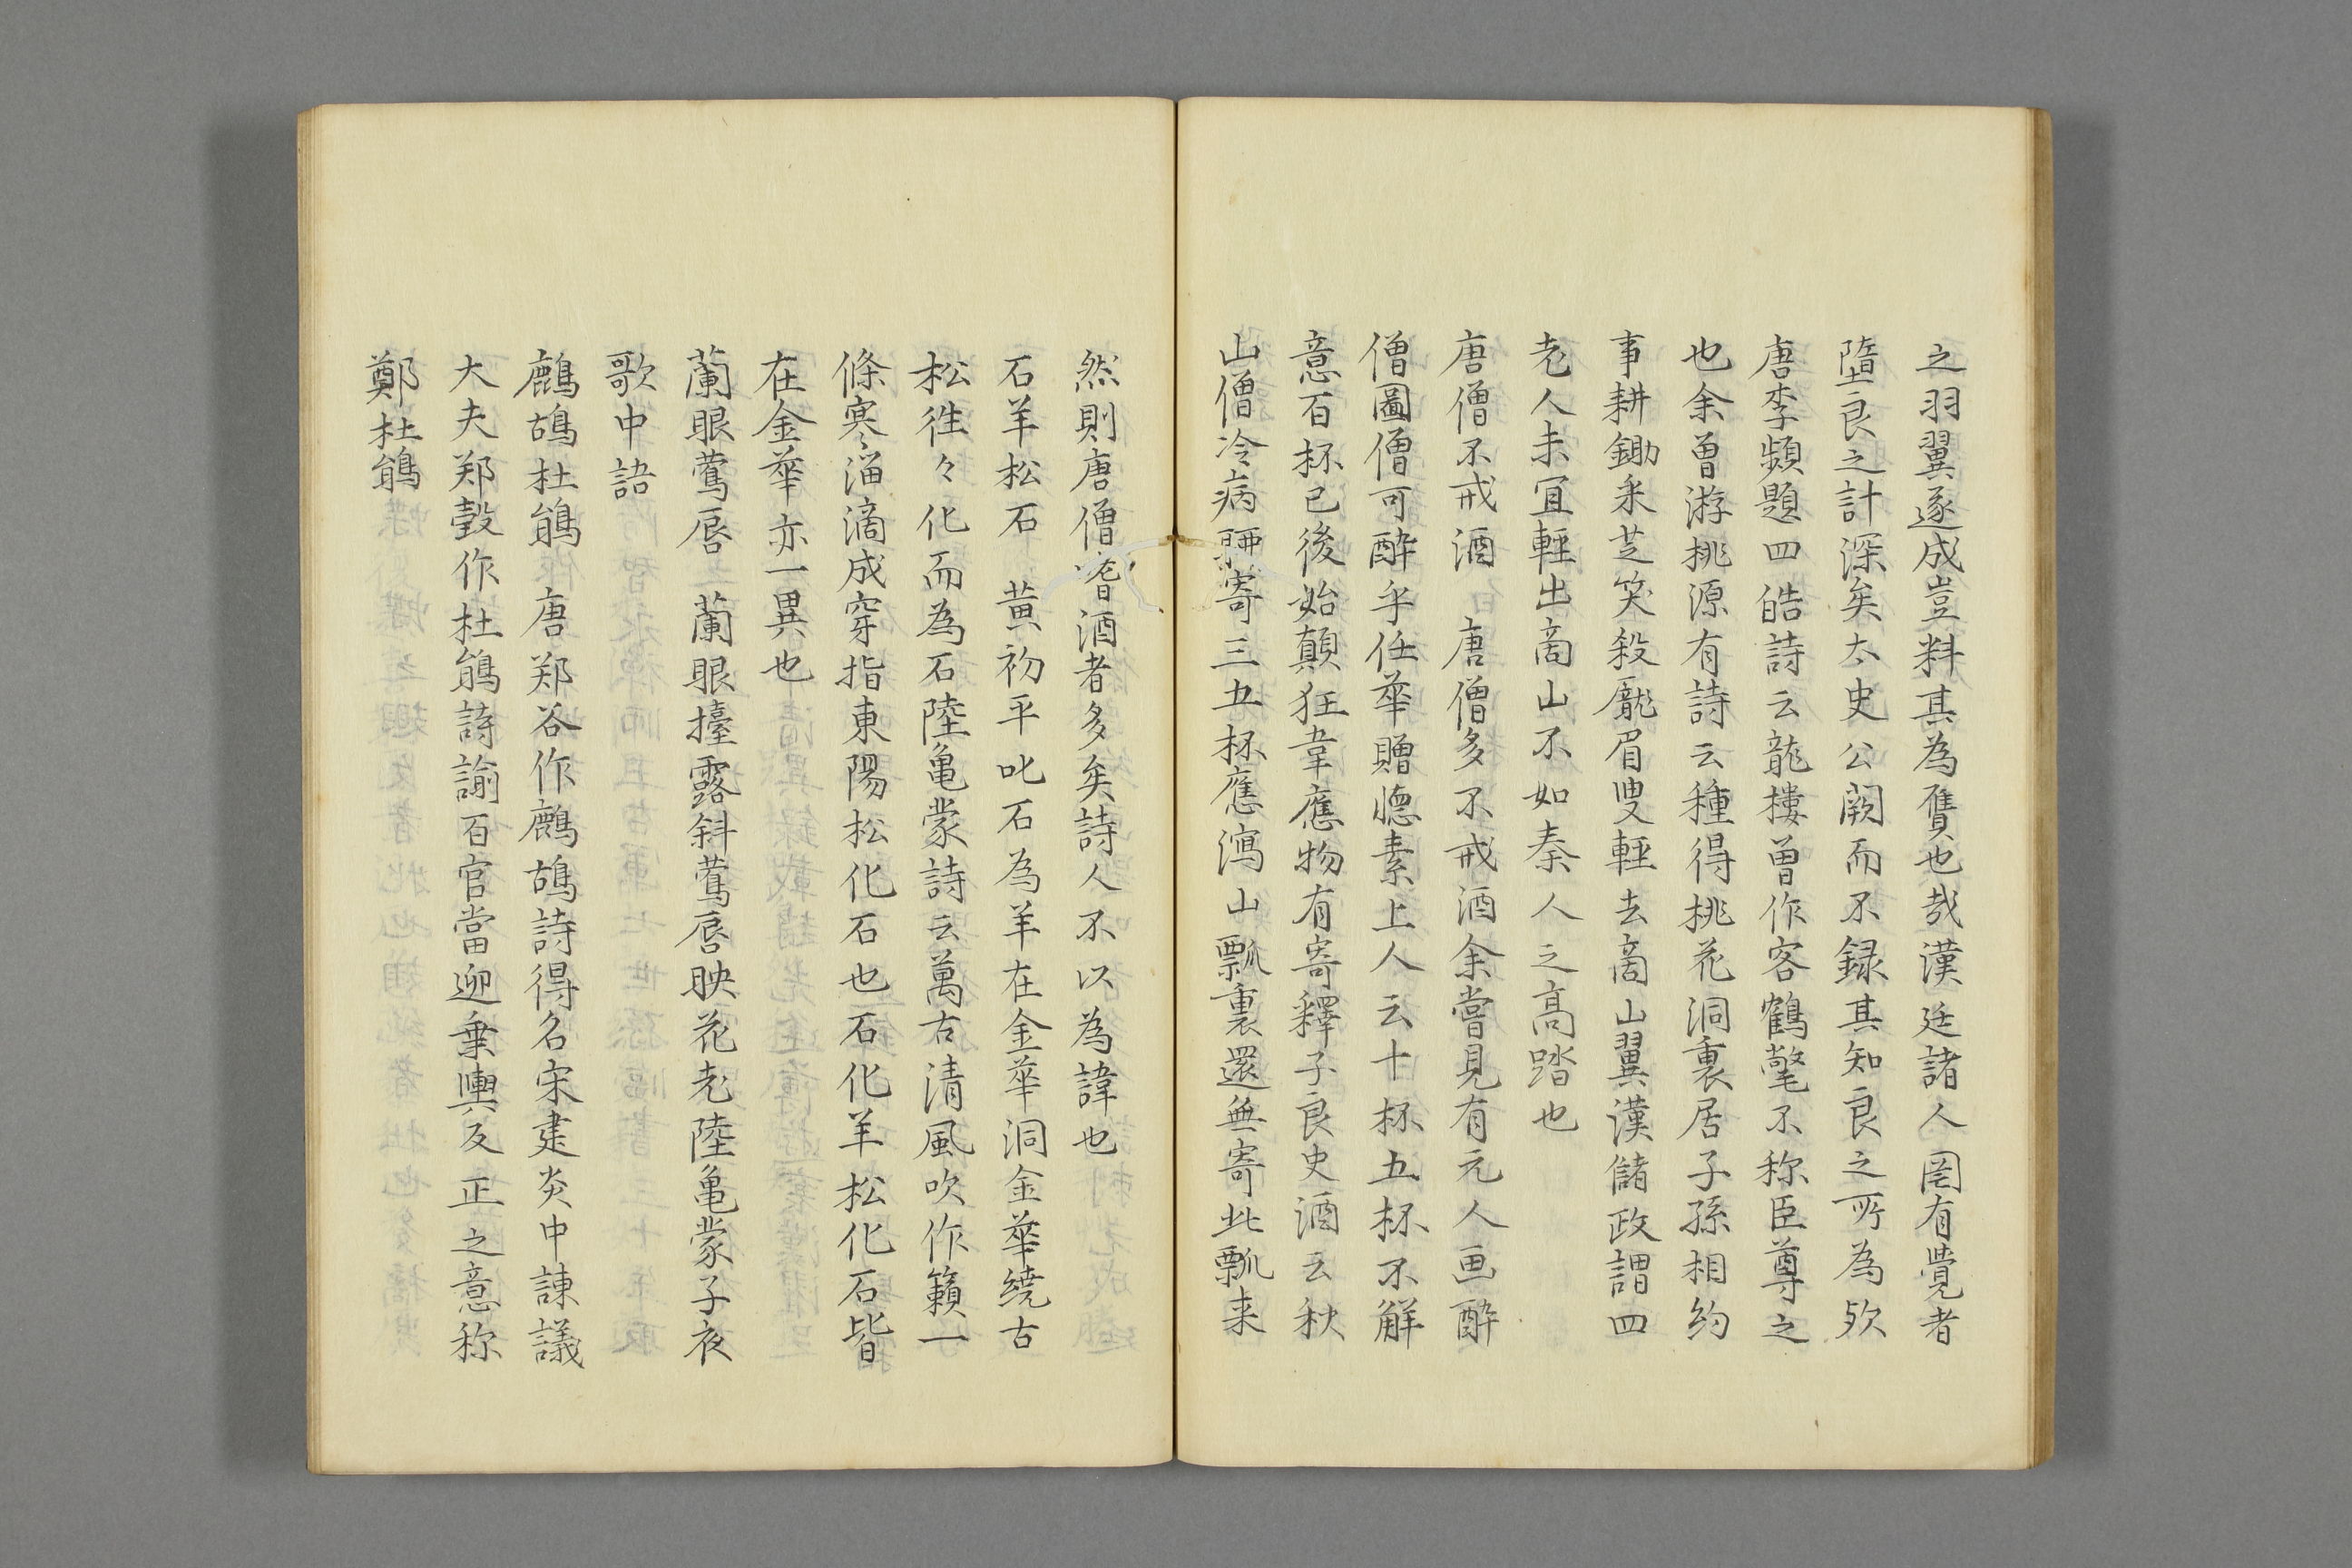 之羽翼遂成豈料其為贋也哉漢廷諸人罔有覺者
墮良之計深矣太史公闕而不録其知良之所為欤
唐李頻題四皓詩云龍樓曽作客鶴氅不称臣尊之
也余曽游桃源有詩云種得桃花洞裏居子孫相約
事耕鋤采芝笑殺龐眉叟輕去啇山翼漢儲政謂四
老人未冝輕出啇山不如秦人之高踏也
唐僧不戒酒　唐僧多不戒酒余嘗見有元人画酔
僧圖僧可酔乎任華贈懐素上人云十杯五杯不觧
意百杯已後始顛狂韋應物有寄釋子良史酒云秋
山僧冷病聊寄三五杯應瀉山瓢裏還無寄此瓢来
然則唐僧嗜酒者多矣詩人不以為諱也
石羊松石　黄初平叱石為羊在金華洞金華繞古
松徃々化而為石陸亀蒙詩云萬古清風吹作籟一
條寒溜滴成穿指東陽松化石也石化羊松化石皆
在金華亦一異也
蘭眼鶯唇　蘭眼擡露斜鶯唇映花老陸亀蒙子夜
歌中語
鷓鴣杜鵑　唐郑谷作鷓鴣詩得名宋建炎中諌議
大夫郑瑴作杜鵑詩諭百官當迎乗輿反正之意称
鄭杜鵑